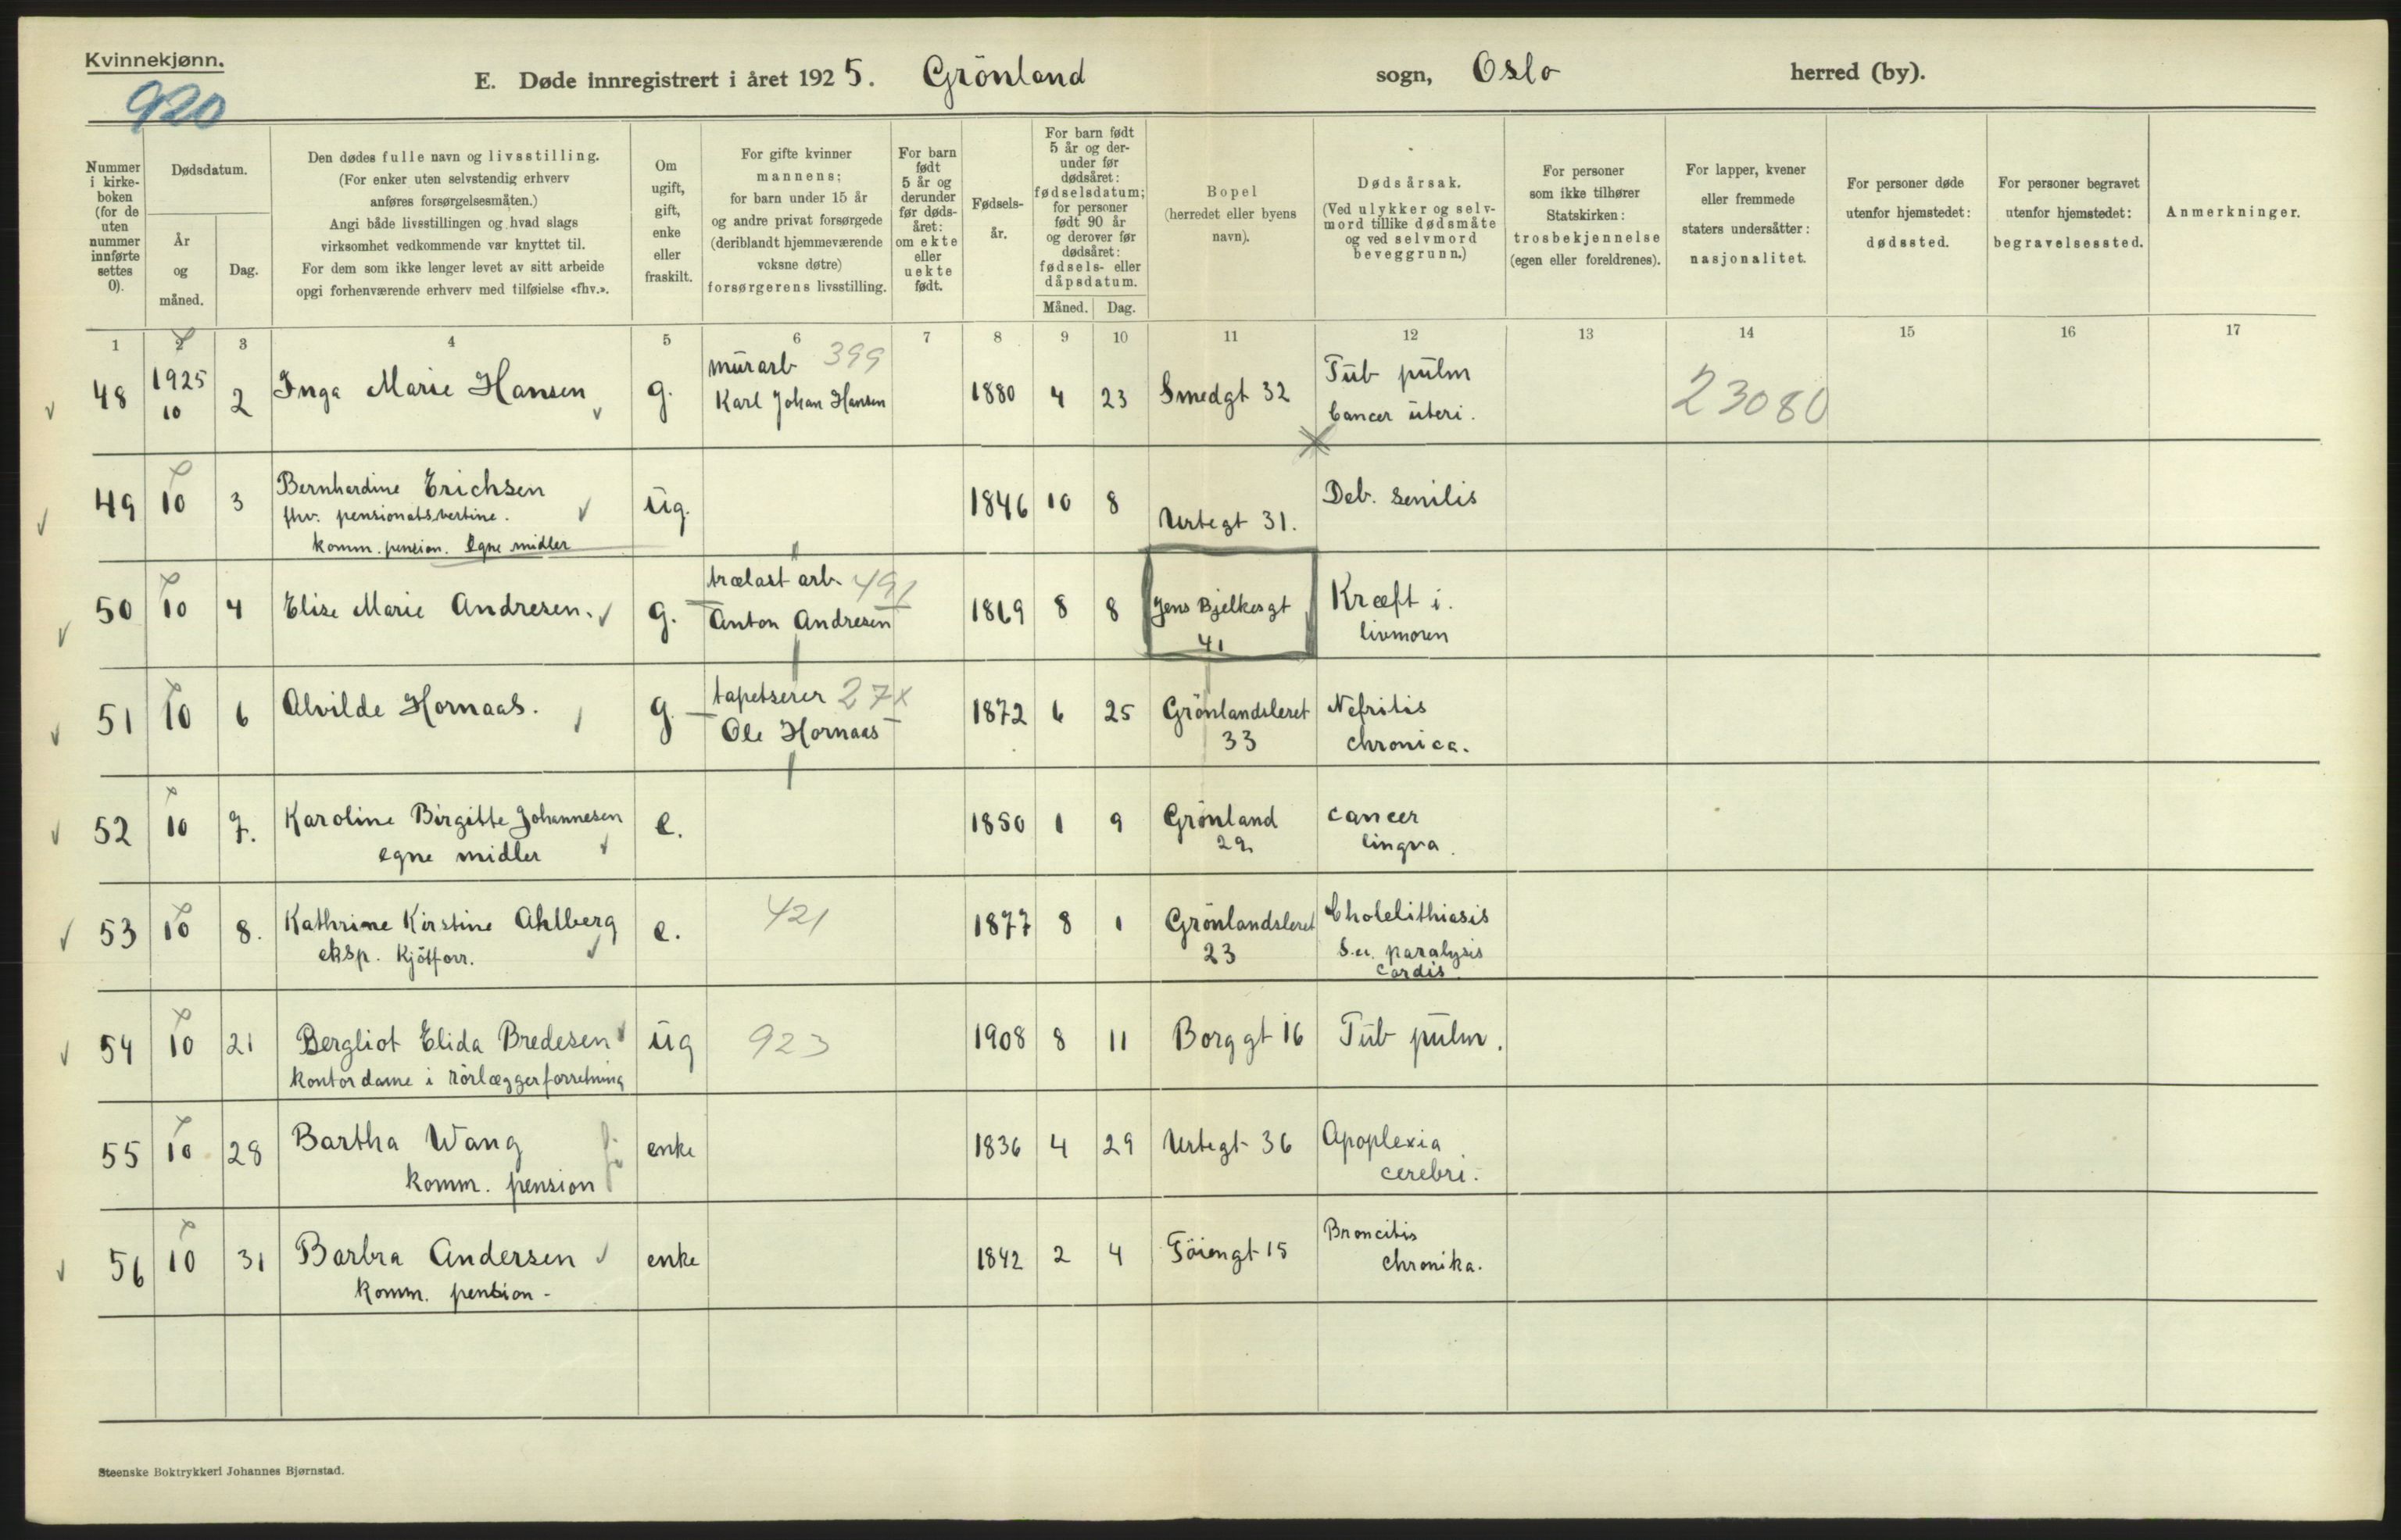 Kvinnekjønn.
920
E. Døde innregistrert i året 1925. Grönland sogn, Oslo herred (by).
Nummer i kirke- boken (for de uten nummer innførte settes 0).
Dødsdatum.
År og måned.
Dag.
Den dødes fulle navn og livsstilling.
(For enker uten selvstendig erhverv
anføres forsørgelsesmåten.)
Angi både livsstillingen og hvad slags
virksomhet vedkommende var knyttet til.
For dem som ikke lenger levet av sitt arbeide
opgi forhenværende erhverv med tilføielse «fhv.».
Om ugift, gift, enke eller fraskilt.
For gifte kvinner
mannens;
for barn under 15 år
og andre privat forsørgede
(deriblandt hjemmeværende
voksne døtre)
forsørgerens livsstilling.
For barn født 5 år og derunder før døds- året: om ekte eller uekte født.
Fødsels- år.
For barn født
5 år og der-
under før
dødsåret:
fødselsdatum;
for personer
født 90 år
og derover før
dødsåret:
fødsels- eller
dåpsdatum.
Måned. Dag.
Bopel
(herredet eller byens
navn).
Dødsårsak.
(Ved ulykker og selv-
mord tillike dødsmåte
og ved selvmord
beveggrunn.)
For personer
som ikke tilhører
Statskirken:
trosbekjennelse
(egen eller foreldrenes).
For lapper, kvener
eller fremmede
staters undersåtter:
nasjonalitet.
For personer døde
utenfor hjemstedet:
dødssted.
For personer begravet
utenfor hjemstedet:
begravelsessted.
Anmerkninger.
1 2 3 4 5 6 7 8 9 10 11 12 13 14 15 16 17
48 1925 10 2 Inga Marie Hansen g. murarb 399
Karl Johan Hansen 1880 4 23 Smedgt 32 Tüb pülm
Cancer üteri. 23080
49 10 3 Bernhardine Erichsen
fhv. pensionatsvertine.
komm. pension. Egne midler
üg. 1846 10 8 Urtegt 31. Deb. senilis
50 10 4 Elise Marie Andresen. g. trælast arb 491
Anton Andresen 1869 8 8 Jens Bjelkesgt
41
Kræft i.
livmoren
51 10 6 Alvilde Hornaas. g. tapetserer 27x
Ole Hornaas 1872 6 25 Grönlandsleret
33
Nefritis
chronica.
52 10 7. Karoline Birgitte Johannesen
egne midler
e. 1850 1 9 Grönland
29
cancer
lingva.
53 10 8. Kathrine Kirstine Ahlberg
eksp. Kjötforr.
e. 421 1877 8 1 Grönlandsleret
23
Cholelithiasis
paralysis
cordis
54 10 21 Bergliot Elida Bredesen
kontordame i rörlæggerforretning
üg 923 1908 8 11 Borggt 16 Tüb pülm.
55 10 28 Bartha Wang
komm. pension
enke 1836 4 29 Urtegt 36 Apoplexia
cerebri.
56 10 31 Barbra Andersen
komm. pension -
enke 1842 2 4 Töiengt 15 Broncitis
chronika.
Steenske Boktrykkeri Johannes Bjørnstad.